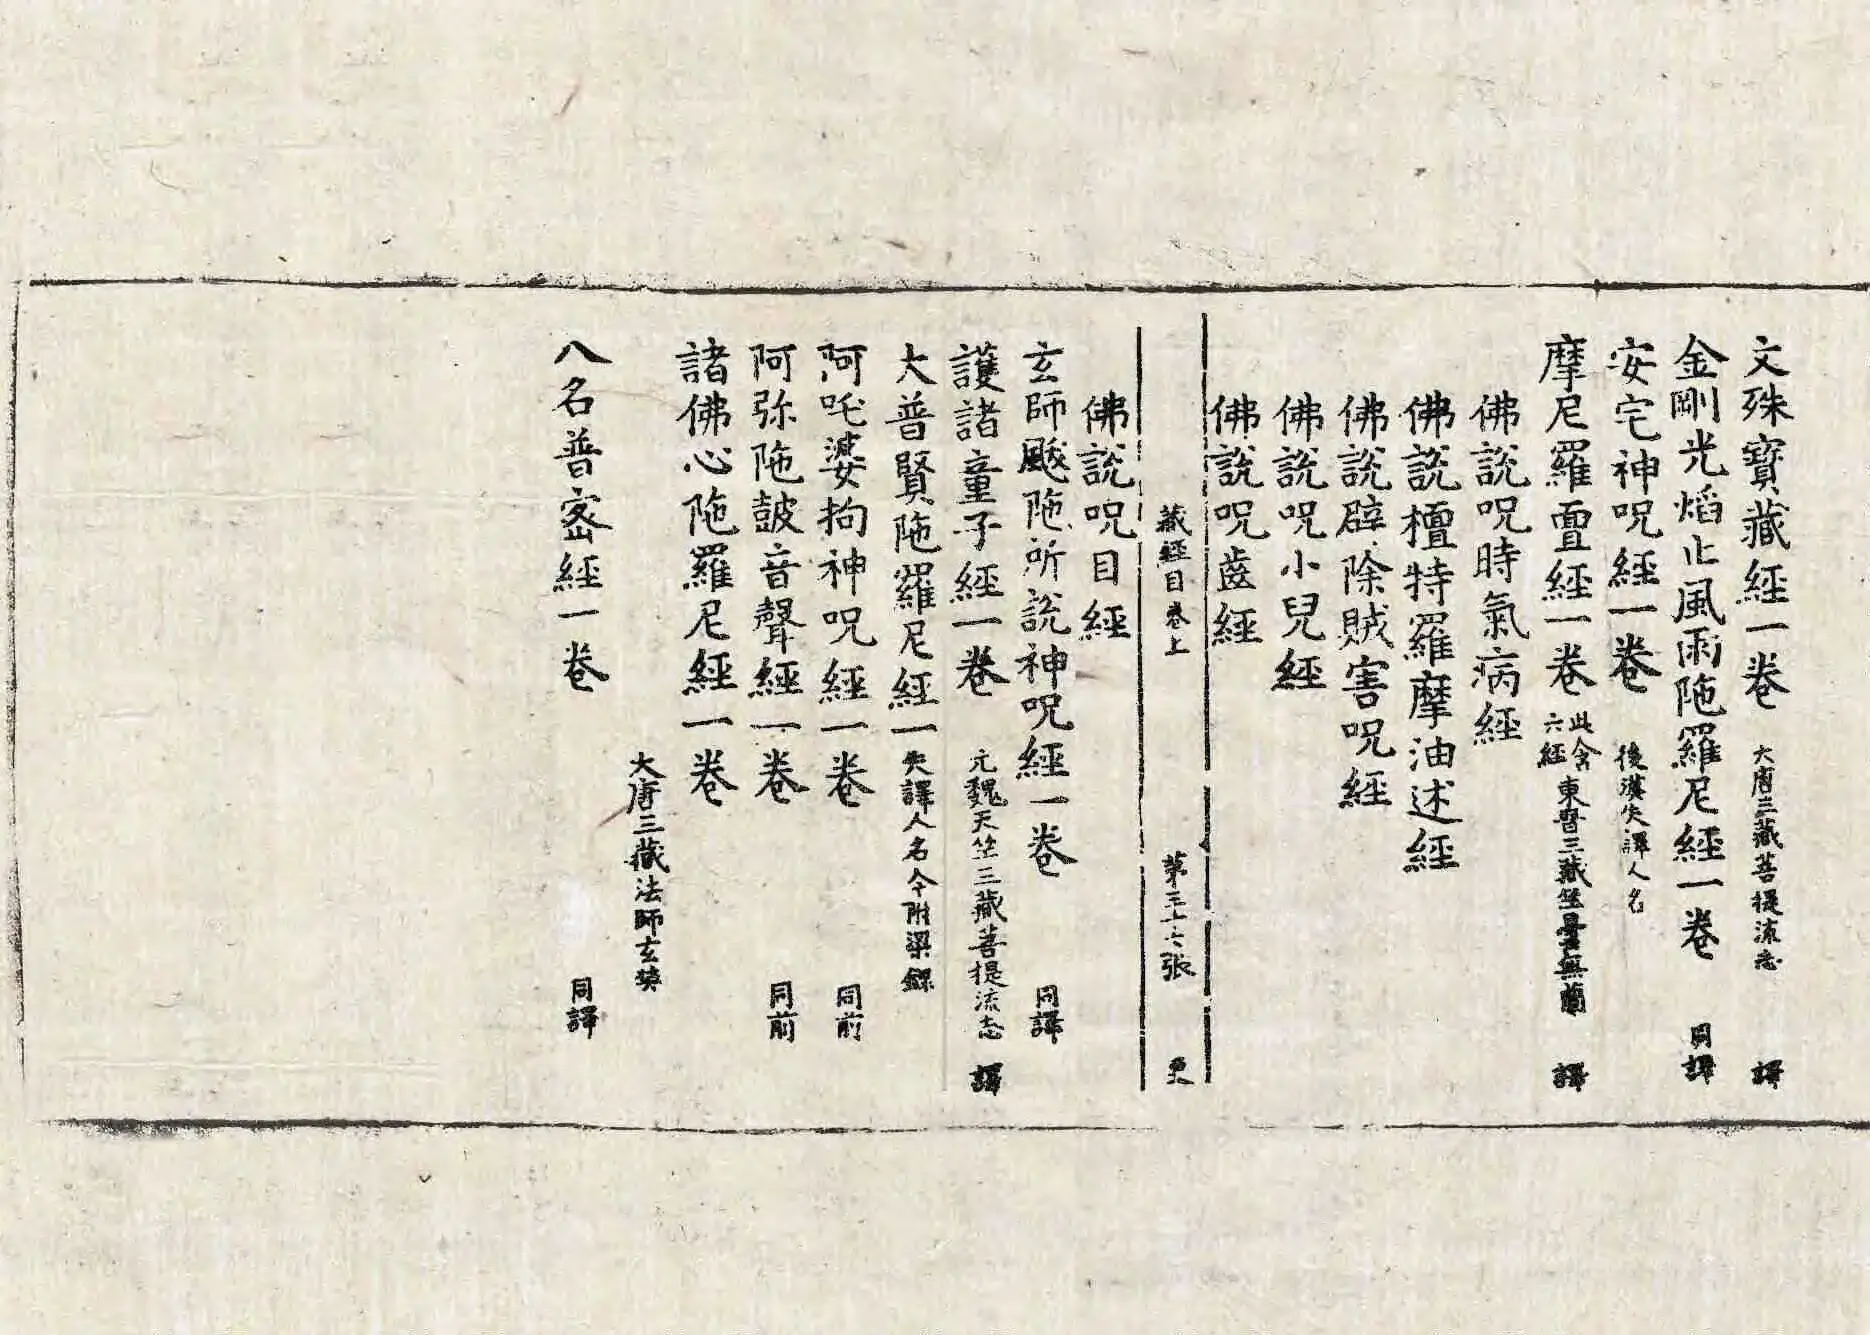 文殊寶藏經一卷 大唐三藏菩提流志 譯
金剛光焰止風雨陁羅尼經一卷 同譯
安宅神呪經一卷 後漢失譯人名
摩尼羅亶經一卷 此含六經 東晉三藏竺曇無蘭 譯
佛說呪時氣病經
佛說檀特羅摩油述經
佛說辟除賊害呪經
佛說呪小兒經
佛說呪齒經
藏經目卷上 第三十六張 更
佛說呪目經
玄師颰陁所說神呪經一卷 同譯
護諸童子經一卷 元魏天竺三藏菩提流志 譯
大普賢陁羅尼經一 失譯人名今附梁錄
阿吒婆拘神呪經一卷 同前
阿弥陁皷音聲經一卷 同前
諸佛心陁羅尼經一卷
大唐三藏法師玄奘
八名普密經一卷 同譯